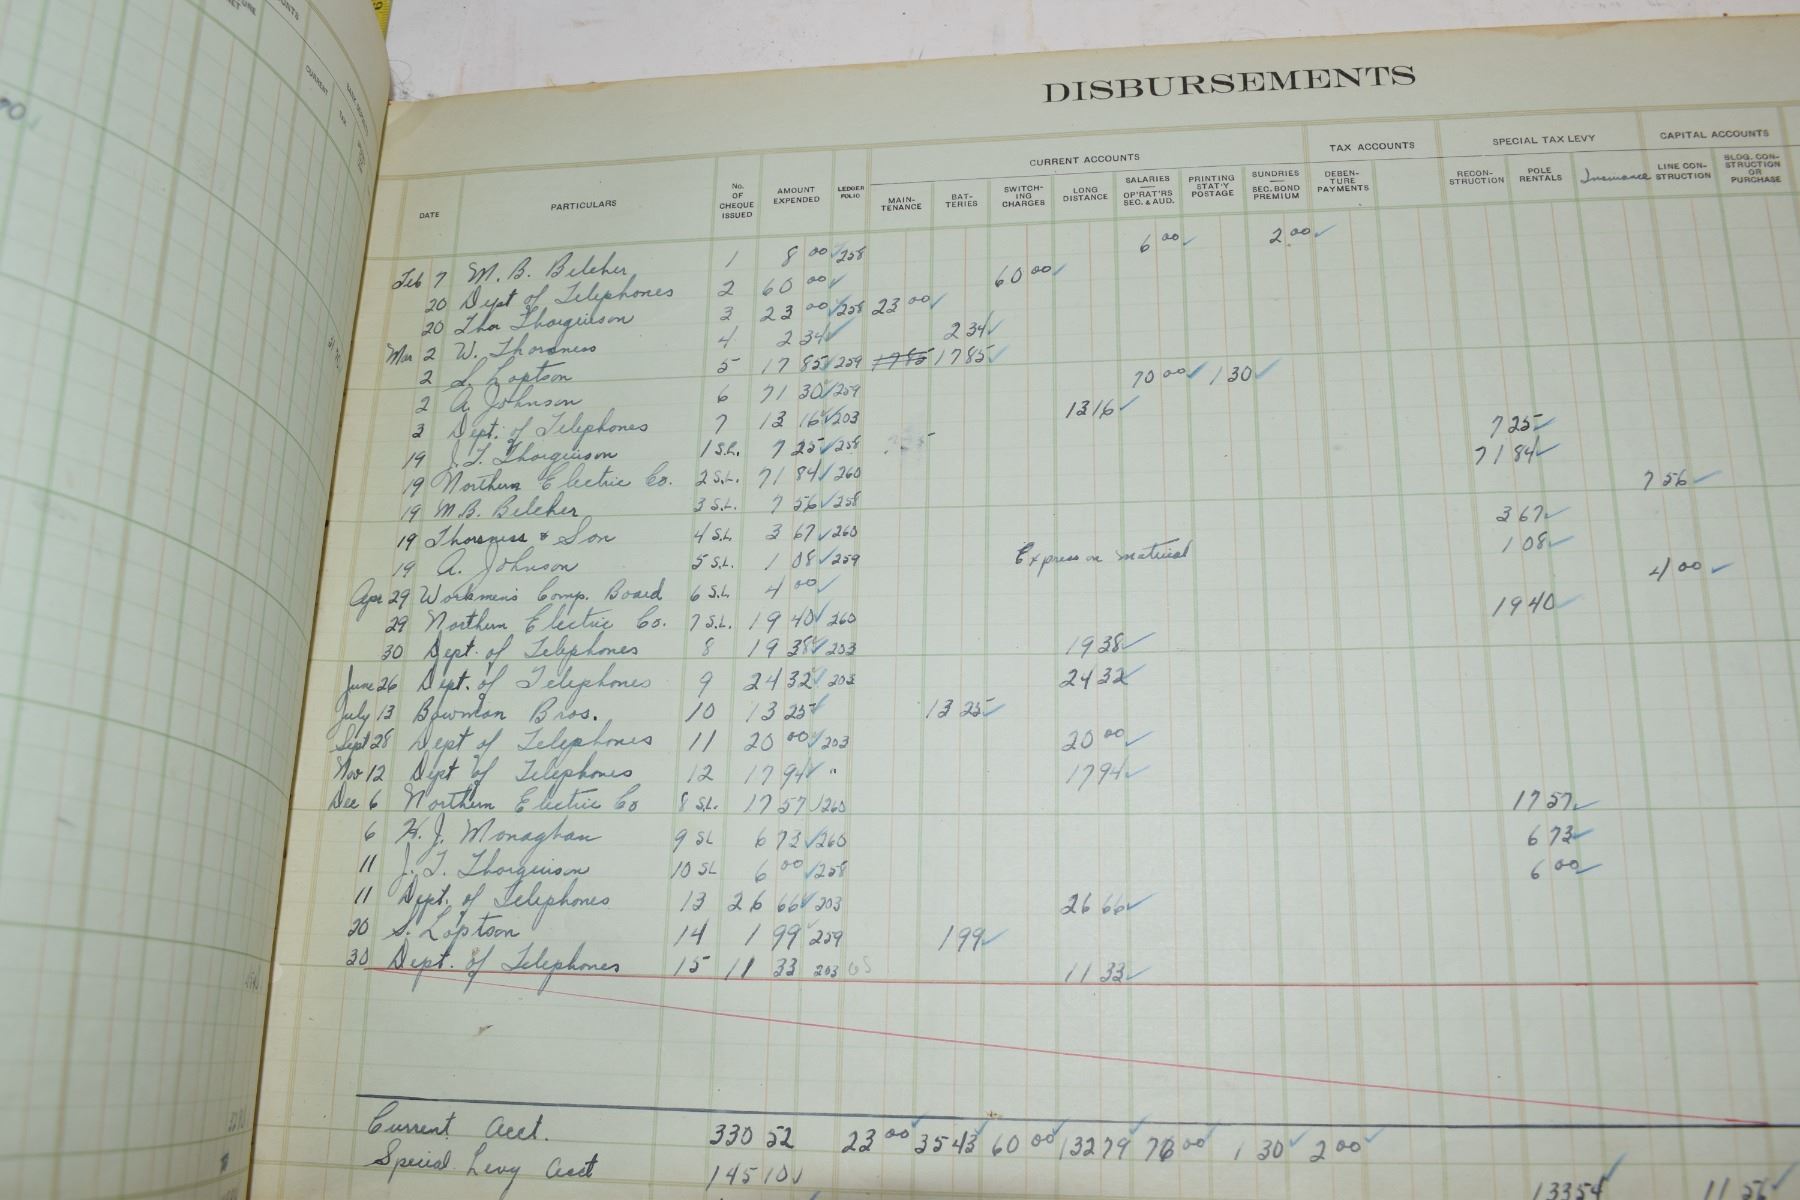 DISBURSEMENTS
CURRENT ACCOUNTS TAX ACCOUNTS SPECIAL TAX LEVY CAPITAL ACCOUNTS
DATE PARTICULARS No. OF CHEQUE ISSUED AMOUNT EXPENDED LEDGER FOLIO MAIN-TENANCE BAT-TERIES SWITCH-ING CHARGES LONG DISTANCE SALARIES OP'RAT'RS SEC. & AUD. PRINTING STAT'Y POSTAGE SUNDRIES SEC. BOND PREMIUM DEBEN-TURE PAYMENTS RECON-STRUCTION POLE RENTALS Insurance LINE CON-STRUCTION BLDG. CON-STRUCTION OR PURCHASE
Feb 7 M. B. Belcher 1 8 00 ✓ 258 6 00 ✓ 2 00 ✓
20 Dept of Telephones 2 60 00 ✓ 60 00 ✓
20 Thor Thorguson 3 23 00 ✓ 258 23 00 ✓
Mar 2 W. Thorsness 4 2 34 ✓ 2 34 ✓
2 S. Loptson 5 17 85 ✓ 259 17 85 17 85 ✓
2 A. Johnson 6 71 30 ✓ 259 70 00 ✓ 1 30 ✓
3 Dept. of Telephones 7 13 16 ✓ 203 13 16 ✓
19 J. T. Thorguson 1 S.L. 7 25 ✓ 258 7 25 ✓
19 Northern Electric Co. 2 S.L. 71 84 ✓ 260 71 84 ✓
19 M. B. Belcher 3 S.L. 7 56 ✓ 258 7 56 ✓
19 Thorsness & Son 4 S.L. 3 67 ✓ 260 3 67 ✓
19 A. Johnson 5 S.L. 1 08 ✓ 259 Express on material 1 08 ✓
Apr 29 Workmen's Comp. Board 6 S.L. 4 00 ✓ 4 00 ✓
29 Northern Electric Co. 7 S.L. 19 40 ✓ 260 19 40 ✓
30 Dept. of Telephones 8 19 38 ✓ 203 19 38 ✓
June 26 Dept. of Telephones 9 24 32 ✓ 203 24 32 ✓
July 13 Bowman Bros. 10 13 25 ✓ 13 25 ✓
Sept 28 Dept of Telephones 11 20 00 ✓ 203 20 00 ✓
Nov 12 Dept of Telephones 12 17 94 ✓ " 17 94 ✓
Dec 6 Northern Electric Co 8 S.L. 17 57 ✓ 260 17 57 ✓
6 H. J. Monaghan 9 SL 6 73 ✓ 260 6 73 ✓
11 J. T. Thorguson 10 SL 6 00 ✓ 258 6 00 ✓
11 Dept. of Telephones 13 26 66 ✓ 203 26 66 ✓
20 S. Loptson 14 1 99 259 1 99 ✓
30 Dept. of Telephones 15 11 33 203 11 33 ✓
Current Acct. 330 52 23 00 ✓ 35 43 ✓ 60 00 ✓ 132 79 ✓ 76 00 ✓ 1 30 ✓ 2 00 ✓
Special Levy Acct 145 10 ✓ 133 54 ✓ 11 56 ✓